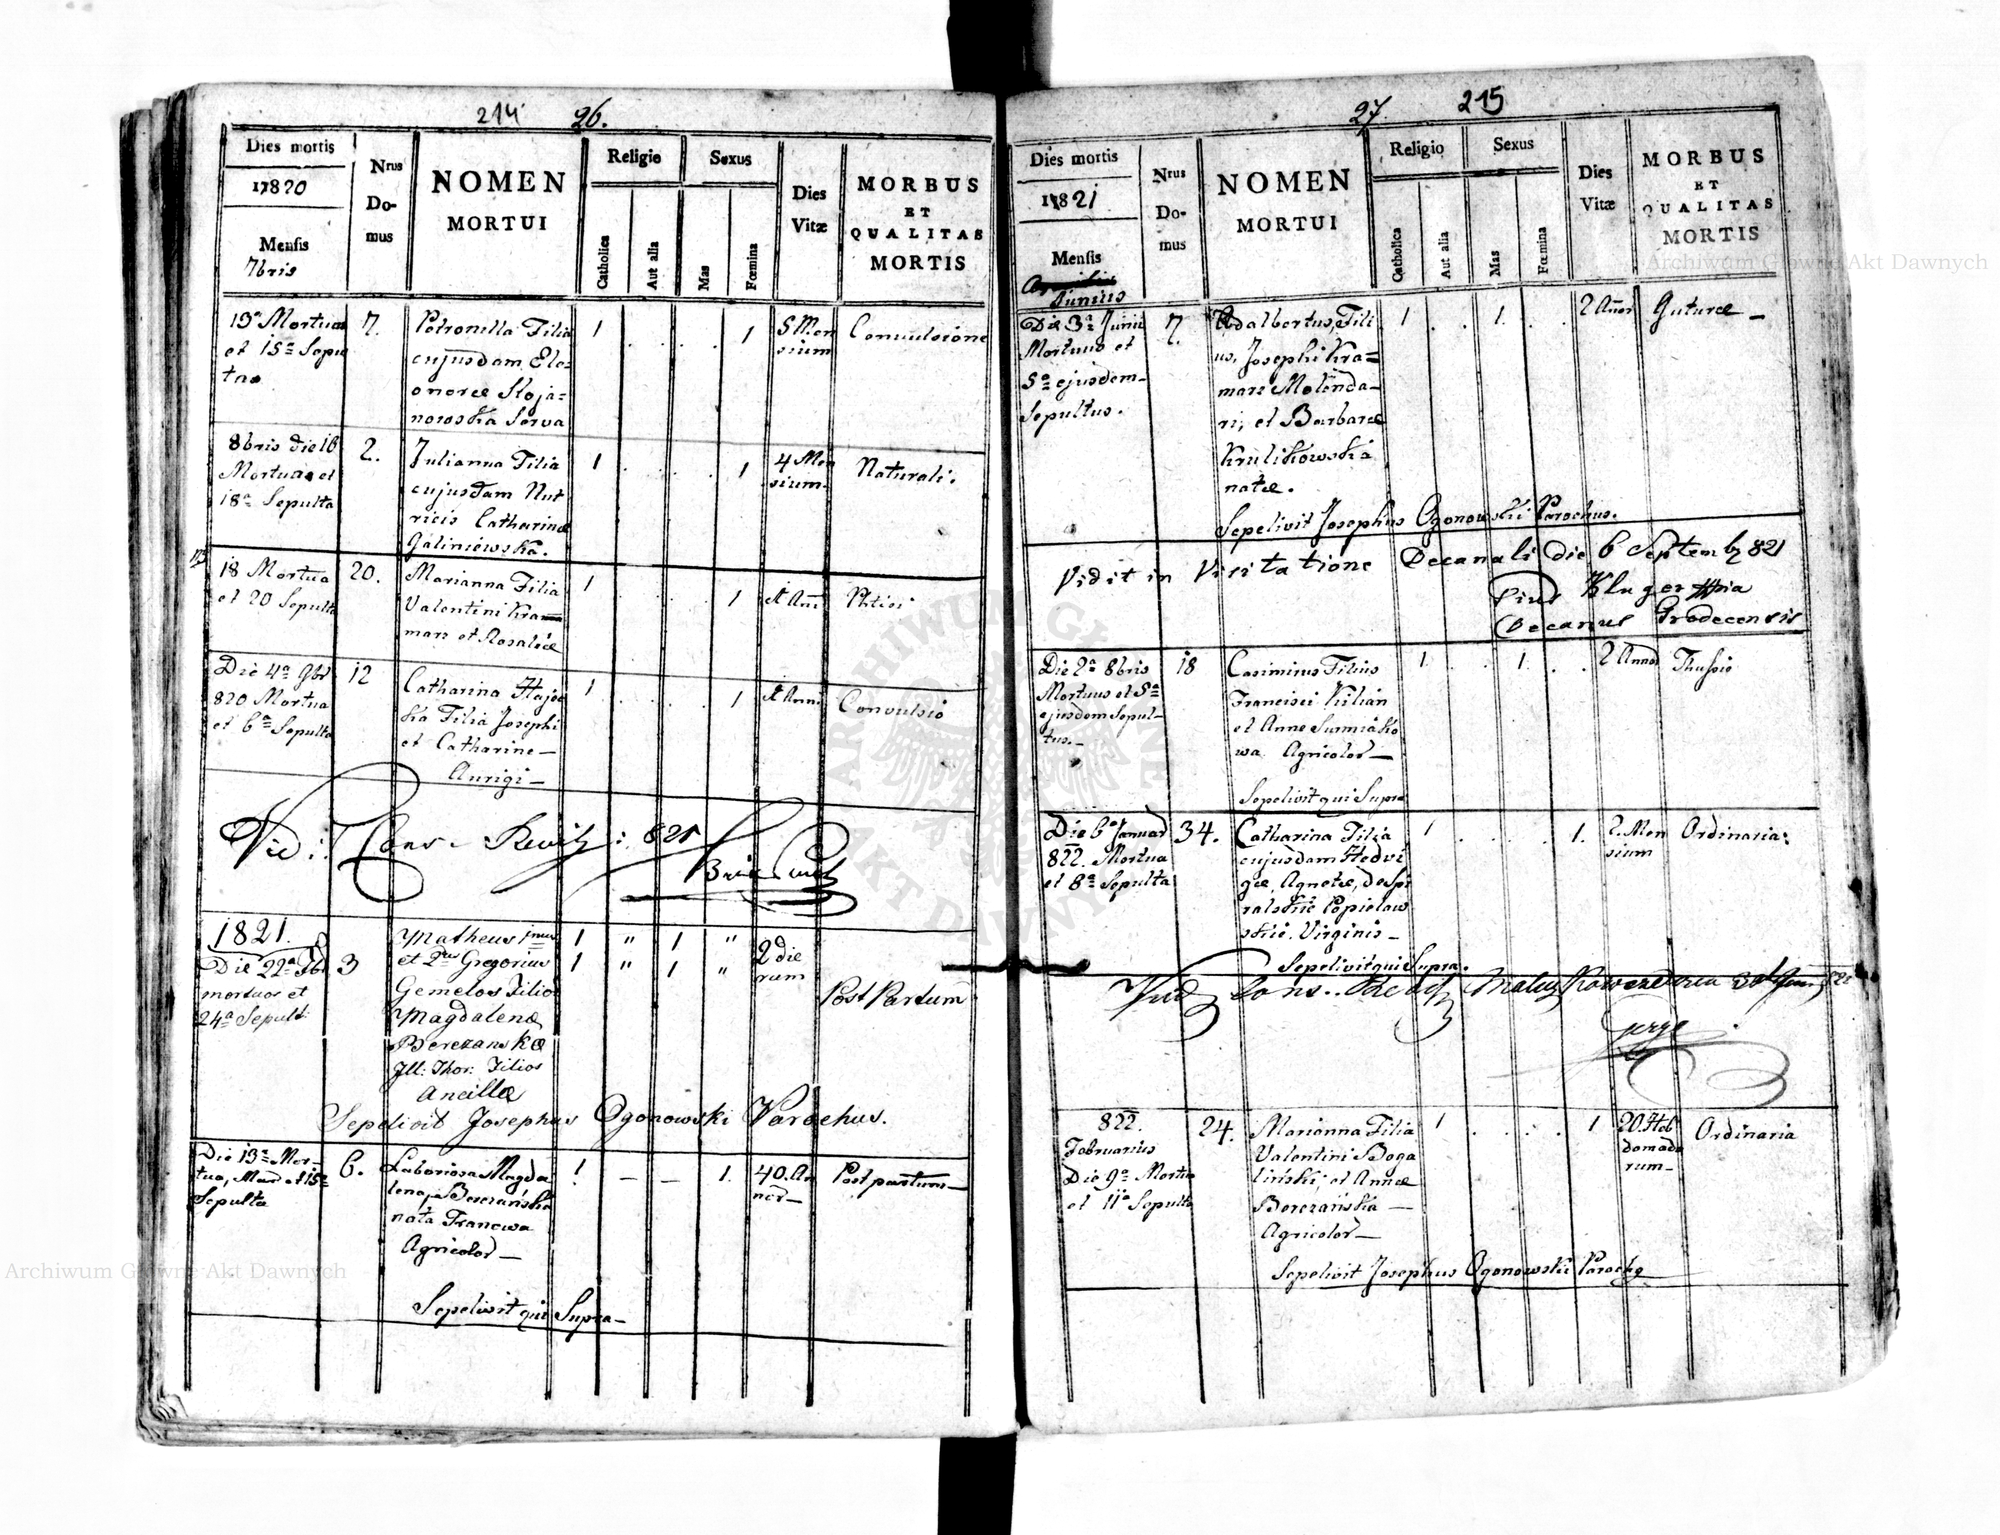 214 26.
Dies mortis
1820
Mensis
7bris
Nrus
Do-
mus
NOMEN
MORTUI
Religio
Catholica
Aut alia
Sexus
Mas
Fœmina
Dies
Vitæ
MORBUS
ET
QUALITAS
MORTIS
13a Mortua
et 15a Sepul
ta
7.
Petronella Filia
cujusdam Ele=
onoræ Stoja=
nowska Serva
1
1
5 Men
sium
Convulsione
8bris die 16
Mortua et
18a Sepulta
2.
Julianna Filia
cujusdam Nut
ricis Catharinæ
Galiniewska.
1
1
4 Men
sium
Naturali.
18 Mortua
et 20 Sepulta
20.
Marianna Filia
Valentini Kra
marz et Rosaliæ
1
1
Phtisi
Die 4a 9br
820 Mortua
et 6a Sepulta
12
Catharina Hajec
ka Filia Josephi
et Catharine
Aurigi
1
1
Convulsio
Vidit Cons. 821
1821.
Die 22a
mortuos et
24a Sepult:
3
Matheus 1mus
et 2dus Gregorius
Gemelos Filios
Magdalenæ
Berezanskæ
Ill: Thor: Filios
Ancillæ
1 " 1 "
1 " 1 "
2 die
rum
Post Partum
Sepelivit Josephus Ogonowski Parochus.
Die 13a Mor-
tua, et 15a
Sepulta
6.
Laboriosa Magda
lena Berezańska
nata Francwa
Agricolor
1 — — 1.
40. An
nor
Post partum
Sepelivit qui Supra
27. 215
Dies mortis
1821
Mensis
Junius
Nrus
Do-
mus
NOMEN
MORTUI
Religio
Catholica
Aut alia
Sexus
Mas
Fœmina
Dies
Vitæ
MORBUS
ET
QUALITAS
MORTIS
Die 3a Junii
Mortuus et
5a ejusdem
Sepultus.
7.
Adalbertus, Fili
us, Josephi Kra=
marz Molenda-
ri, et Barbaræ
Krulikowska
natæ.
1 . 1 .
2 Anor
Guturæ
Sepelivit Josephus Ogonowski Parochus.
Vidit in Visitatione Decanali die 6 Septemb 821
Pius Kluger
Decanus Grodecensis
Die 2a 8bris
Mortuus et 5a
ejusdem Sepul-
tus.
18
Casimirus Filius
Francisci Kilian
et Anne Surmiako
wa Agricolor
1 . 1 .
2 Annor
Thussis
Sepelivit qui Supra
Die 6a Januar
822. Mortua
et 8a Sepulta
34.
Catharina Filia
cujusdam Hedvi
gæ, Agnetæ,
Popielaw
skie Virginis
1 . . 1.
2. Men
sium
Ordinaria:
Sepelivit qui Supra.
822.
Februarius
Die 9a Mortua
et 11a Sepulta
24.
Marianna Filia
Valentini Boga
liński, et Annæ
Berezańska
Agricolor
1 . . 1
20. Heb
domada
rum
Ordinaria
Sepelivit Josephus Ogonowski Paroch
Archiwum Główne Akt Dawnych
Archiwum Główne Akt Dawnych
ARCHIWUM GŁÓWNE AKT DAWNYCH